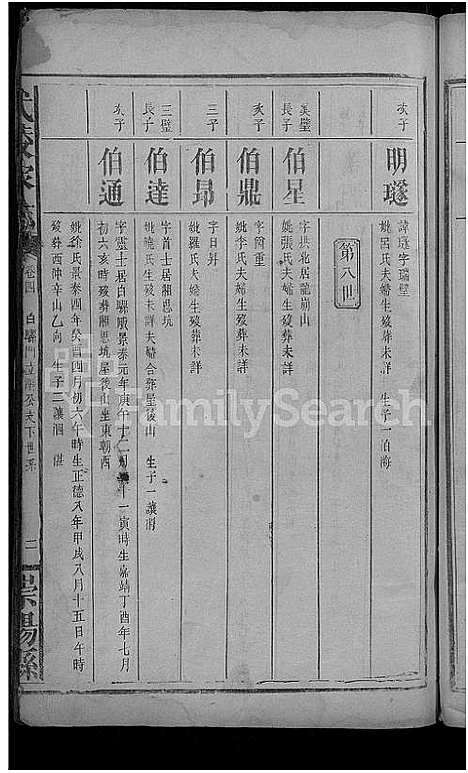 次子
明璲
諱璲字瑞璧
妣呂氏夫婦生歿葬未詳　生子一伯海
第八世
美璧
長子
伯星
字拱北居龍崩山
妣張氏夫婦生歿葬未詳
次子
伯鼎
字尚重
妣李氏夫婦生歿葬未詳
三子
伯昂
字日昇
妣羅氏夫婦生歿葬未詳
三璧
長子
伯達
字首士居湘思坑
妣饒氏生歿未詳夫婦合葬屋後山　生子一讓
次子
伯通
字靈士居白騾厰景泰元年庚午十二月十一寅時生嘉靖丁酉年七月
初六亥時歿葬湘思坑屋後山坐東朝西
妣徐氏景泰四年癸酉四月初六午時生正德八年甲戌八月十五日午時
歿葬西冲辛山乙向　生子二讓
卷四
二
FamilySearch